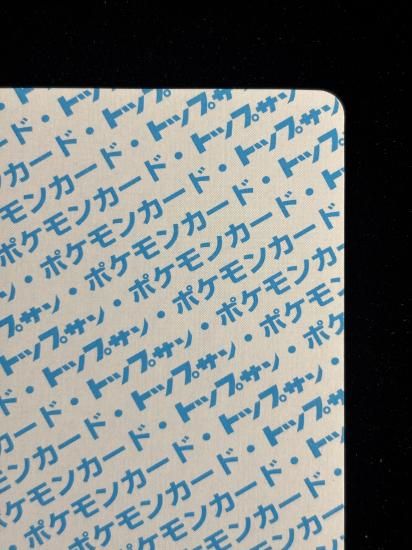 ト
ード・トップ
カード・トップサン
モンカード・トップサン
ポケモンカード・トップサン
・ポケモンカード・トップ
ン・ポケモンカード・ト
プサン・ポケモンカード
トップサン・ポケモンカー
・トップサン・ポケモン
ド・トップサン・ポケ
カード・トップサン・
ンカード・トップサン
ケモンカード・トップサ
・ポケモンカード・ト
ポケモンカード・
ポケモンカード